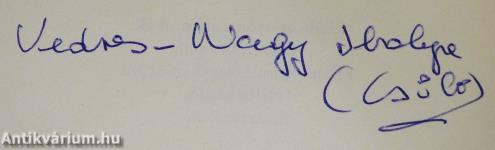 Vedres-Nagy Ibolya
(Csülö)
Antikvárium.hu